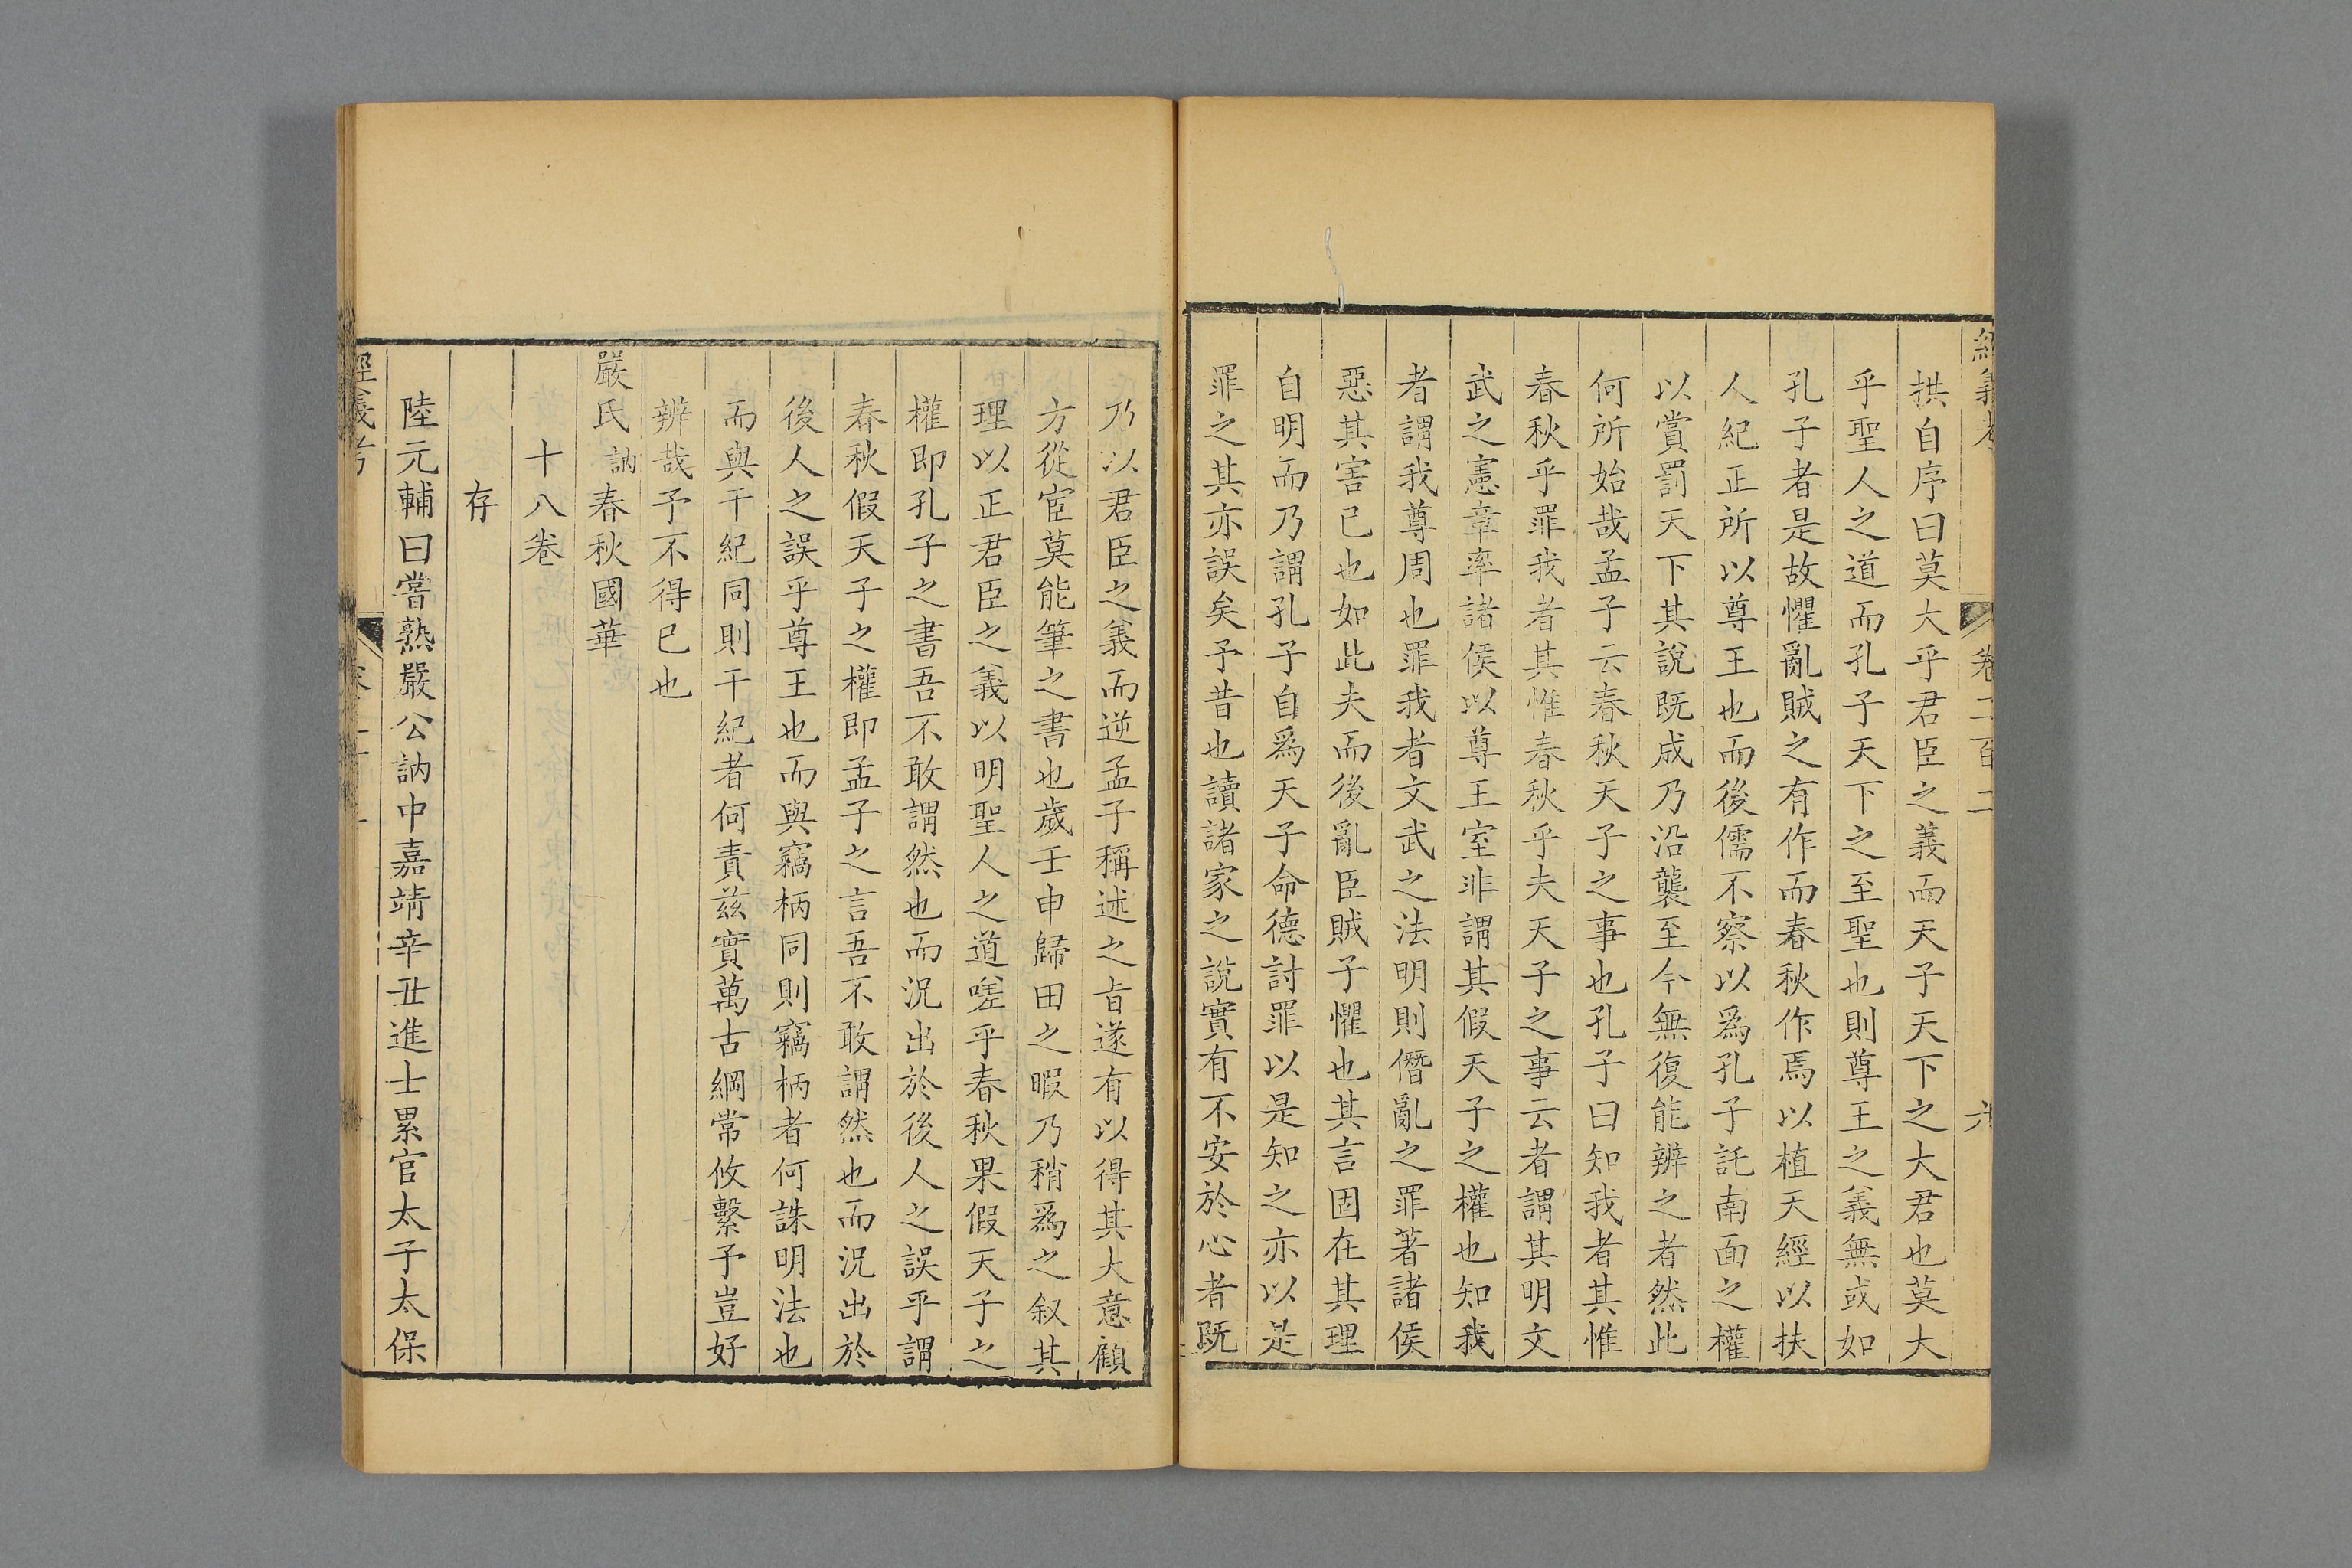 經義考 卷二百二 六
拱自序曰莫大乎君臣之義而天子天下之大君也莫大
乎聖人之道而孔子天下之至聖也則尊王之義無或如
孔子者是故懼亂賊之有作而春秋作焉以植天經以扶
人紀正所以尊王也而後儒不察以爲孔子託南面之權
以賞罰天下其說既成乃沿襲至今無復能辨之者然此
何所始哉孟子云春秋天子之事也孔子曰知我者其惟
春秋乎罪我者其惟春秋乎夫天子之事云者謂其明文
武之憲章率諸侯以尊王室非謂其假天子之權也知我
者謂我尊周也罪我者文武之法明則僭亂之罪著諸侯
惡其害已也如此夫而後亂臣賊子懼也其言固在其理
自明而乃謂孔子自爲天子命德討罪以是知之亦以是
罪之其亦誤矣予昔也讀諸家之說實有不安於心者既
乃以君臣之義而逆孟子稱述之旨遂有以得其大意顧
方從宦莫能筆之書也歲壬申歸田之暇乃稍爲之叙其
理以正君臣之義以明聖人之道嗟乎春秋果假天子之
權即孔子之書吾不敢謂然也而況出於後人之誤乎謂
春秋假天子之權即孟子之言吾不敢謂然也而況出於
後人之誤乎尊王也而與竊柄同則竊柄者何誅明法也
而與干紀同則干紀者何責茲實萬古綱常攸繫予豈好
辨哉予不得已也
嚴氏訥春秋國華
十八卷
存
陸元輔曰嘗熟嚴公訥中嘉靖辛丑進士累官太子太保
經義考